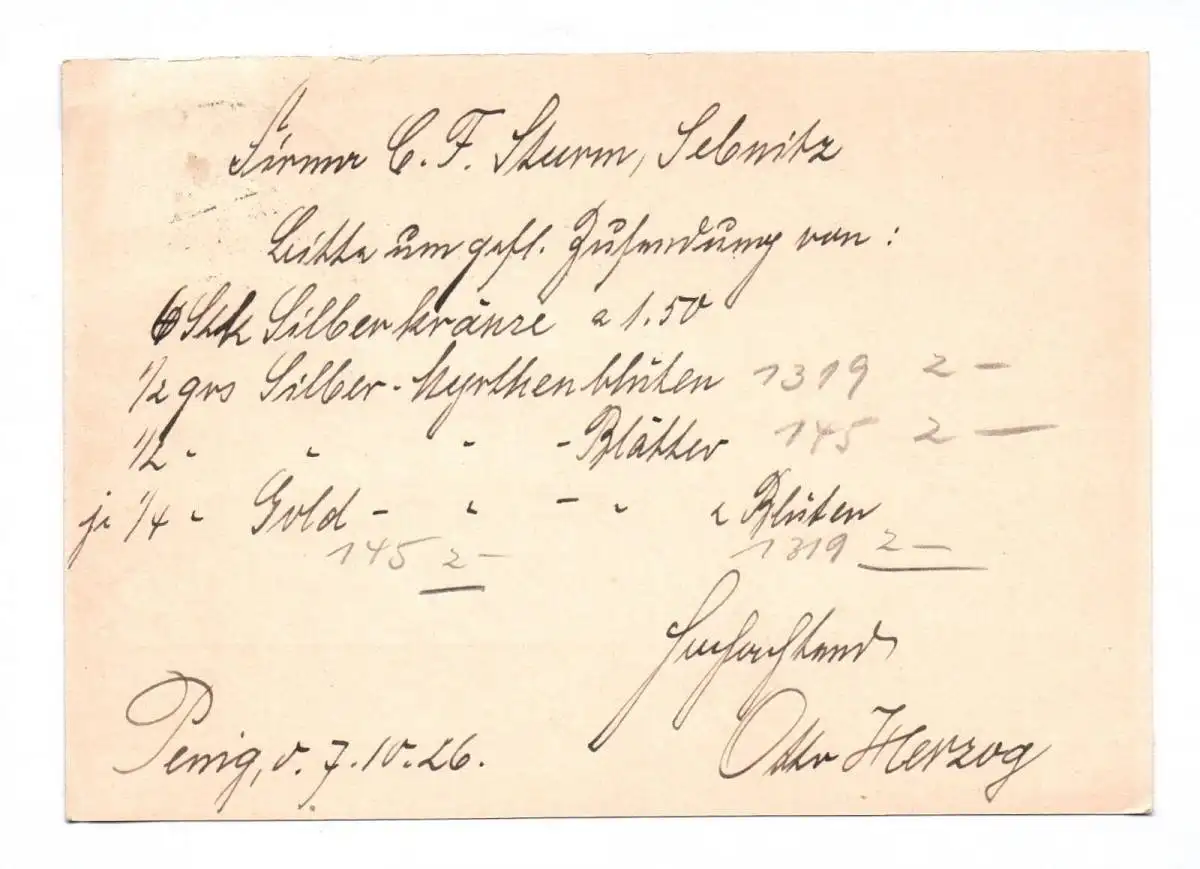 Firma C. F. Sturm, Sebnitz
Bitte um gefl. Zusendung von:
6 Stck Silberkränze a 1.50
1/2 grs Silber-Myrthenblüten 1319 2 –
1/2 " " " - Blätter 145 2 –
je 1/4 " Gold - " - " u Blüten
145 2 – 1319 2 –
Hochachtend
Penig, d. 7.10.26. Otto Herzog